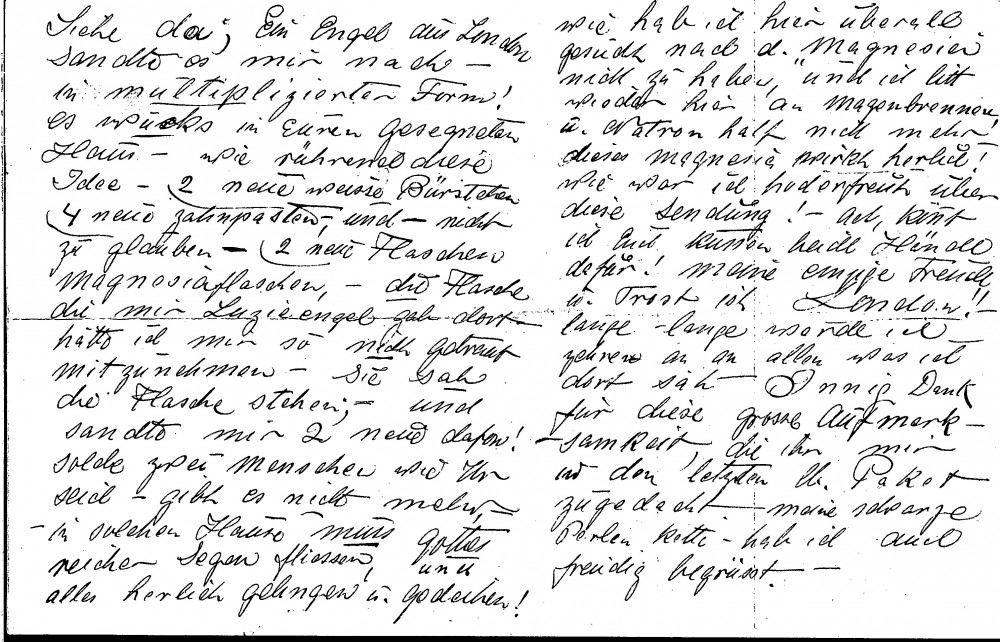 Siehe da; Ein Engel aus London
sandte es mir nach –
in multiplizierter Form!
es wucks in Euren gesegneten
Haus – wie rührend diese
Idee – 2 neue weisse Bürstchen
4 neue zahnpasten, und – nicht
zu glauben – 2 neue Flaschen
magnesiaflaschen, – die Flasche
die mir Luzieengel gab dort
hätte ich mir so nicht getraut
mitzunehmen – Sie sah
die Flasche stehen; – und
sandte mir 2 neue dafür!
solche zwei Menschen wie Ihr
seid – gibt es nicht mehr, –
– in solchen Hause muss gottes
reicher Segen fliessen, und
alles herlich gelingen u. gedeihen!
wie hab ich hier überall
gesucht nach d. Magnesia
nicht zu haben, und ich litt
wieder hier an Magenbrennen,
u. Natron half nich mehr
dieses magnesia wirkt herlich!
wie war ich hocherfreut über
diese Sendung! – ach, könt
ich Euch küssen beide Hände
dafür! meine einzige Freude
u. Trost ist London!! –
lange – lange werde ich
zehren an an allen was ich
dort sah – Innig Dank
für diese grosse Aufmerk –
– samkeit, die ihr mir
in den letzten Paket
zugedacht – meine schwarze
Perlen Kette – hab ich auch
freudig begrüsst. –